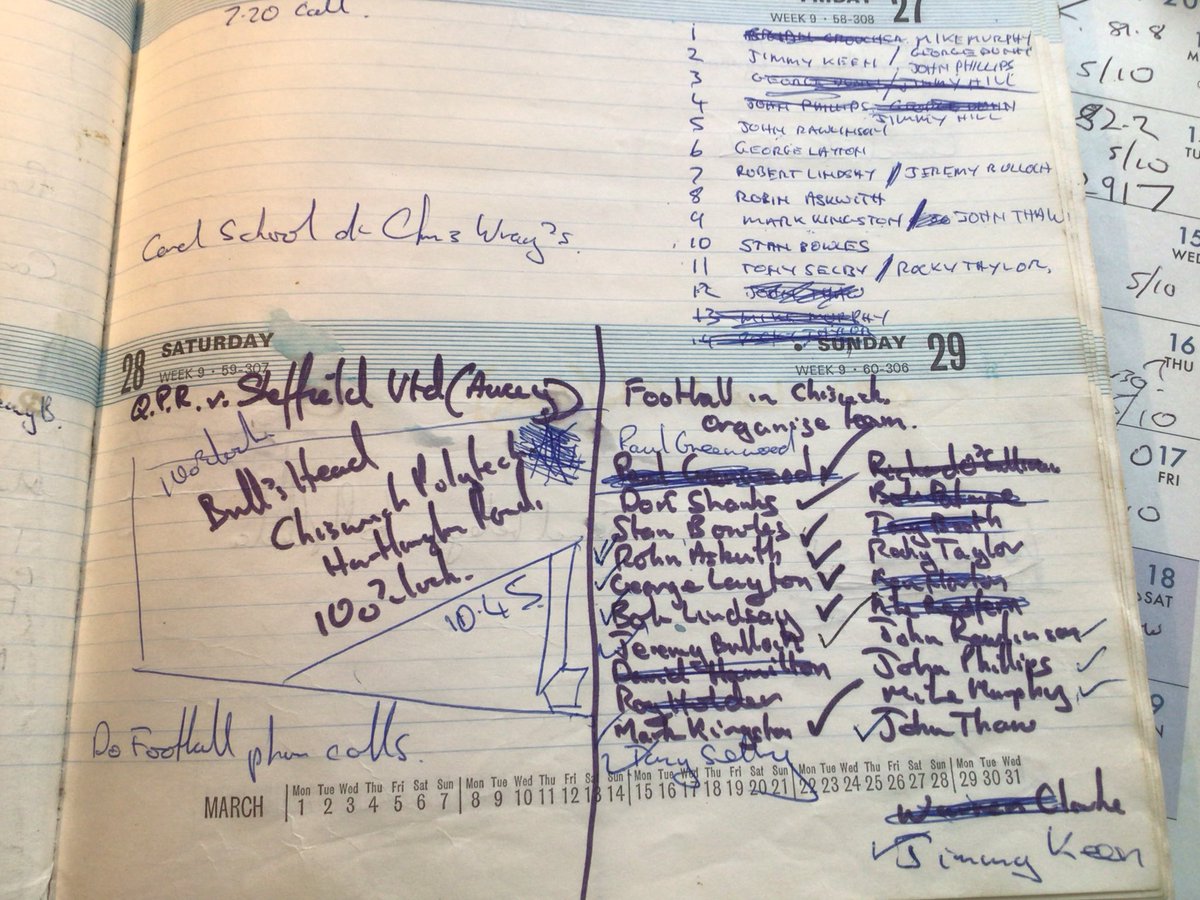 7.20 call.
FRIDAY 27
WEEK 9 • 58-308
1 MIKE MURPHY
2 JIMMY KEEN / GEORGE DUNN
JOHN PHILLIPS
3 GEORGE DUNN / JIMMY HILL
4 JOHN PHILLIPS GEORGE DUNN
JIMMY HILL
5 JOHN RAWLINSON
6 GEORGE LAYTON
7 ROBERT LINDSAY / JEREMY BULLOCH
8 ROBIN ASKWITH
9 MARK KINGSTON / JOHN THAW
10 STAN BOWLES
11 TONY SELBY / ROCKY TAYLOR.
12 JOHN THAW
13 MIKE MURPHY
14
Card School at Chris Wray's.
28 SATURDAY
WEEK 9 • 59-307
Q.P.R. v. Sheffield Utd (Away)
10 o'clock
Bull's Head
Chiswick Polytech
Hartlington Road.
10 o'clock.
10.45.
Do Football phone calls.
• SUNDAY 29
WEEK 9 • 60-306
Football in Chiswick.
Organise team.
Paul Greenwood
Paul Greenwood
Don Shanks
Stan Bowles
Robin Askwith
George Layton
Bob Lindsay
Jeremy Bulloch
David Hamilton
Roy Holder
Mark Kingston
Tony Selby
Richard O'Sullivan
Rocky Taylor
Ken Norton
John Rawlinson
John Phillips
Mike Murphy
John Thaw
Warren Clarke
Jimmy Keen
MARCH
Mon Tue Wed Thu Fri Sat Sun Mon Tue Wed Thu Fri Sat Sun Mon Tue Wed Thu Fri Sat Sun Mon Tue Wed Thu Fri Sat Sun Mon Tue Wed
1 2 3 4 5 6 7 8 9 10 11 12 13 14 15 16 17 18 19 20 21 22 23 24 25 26 27 28 29 30 31
81.8
5/10
82.2
5/10
917
15
WED
5/10
16
THU
/10
17
FRI
18
SAT